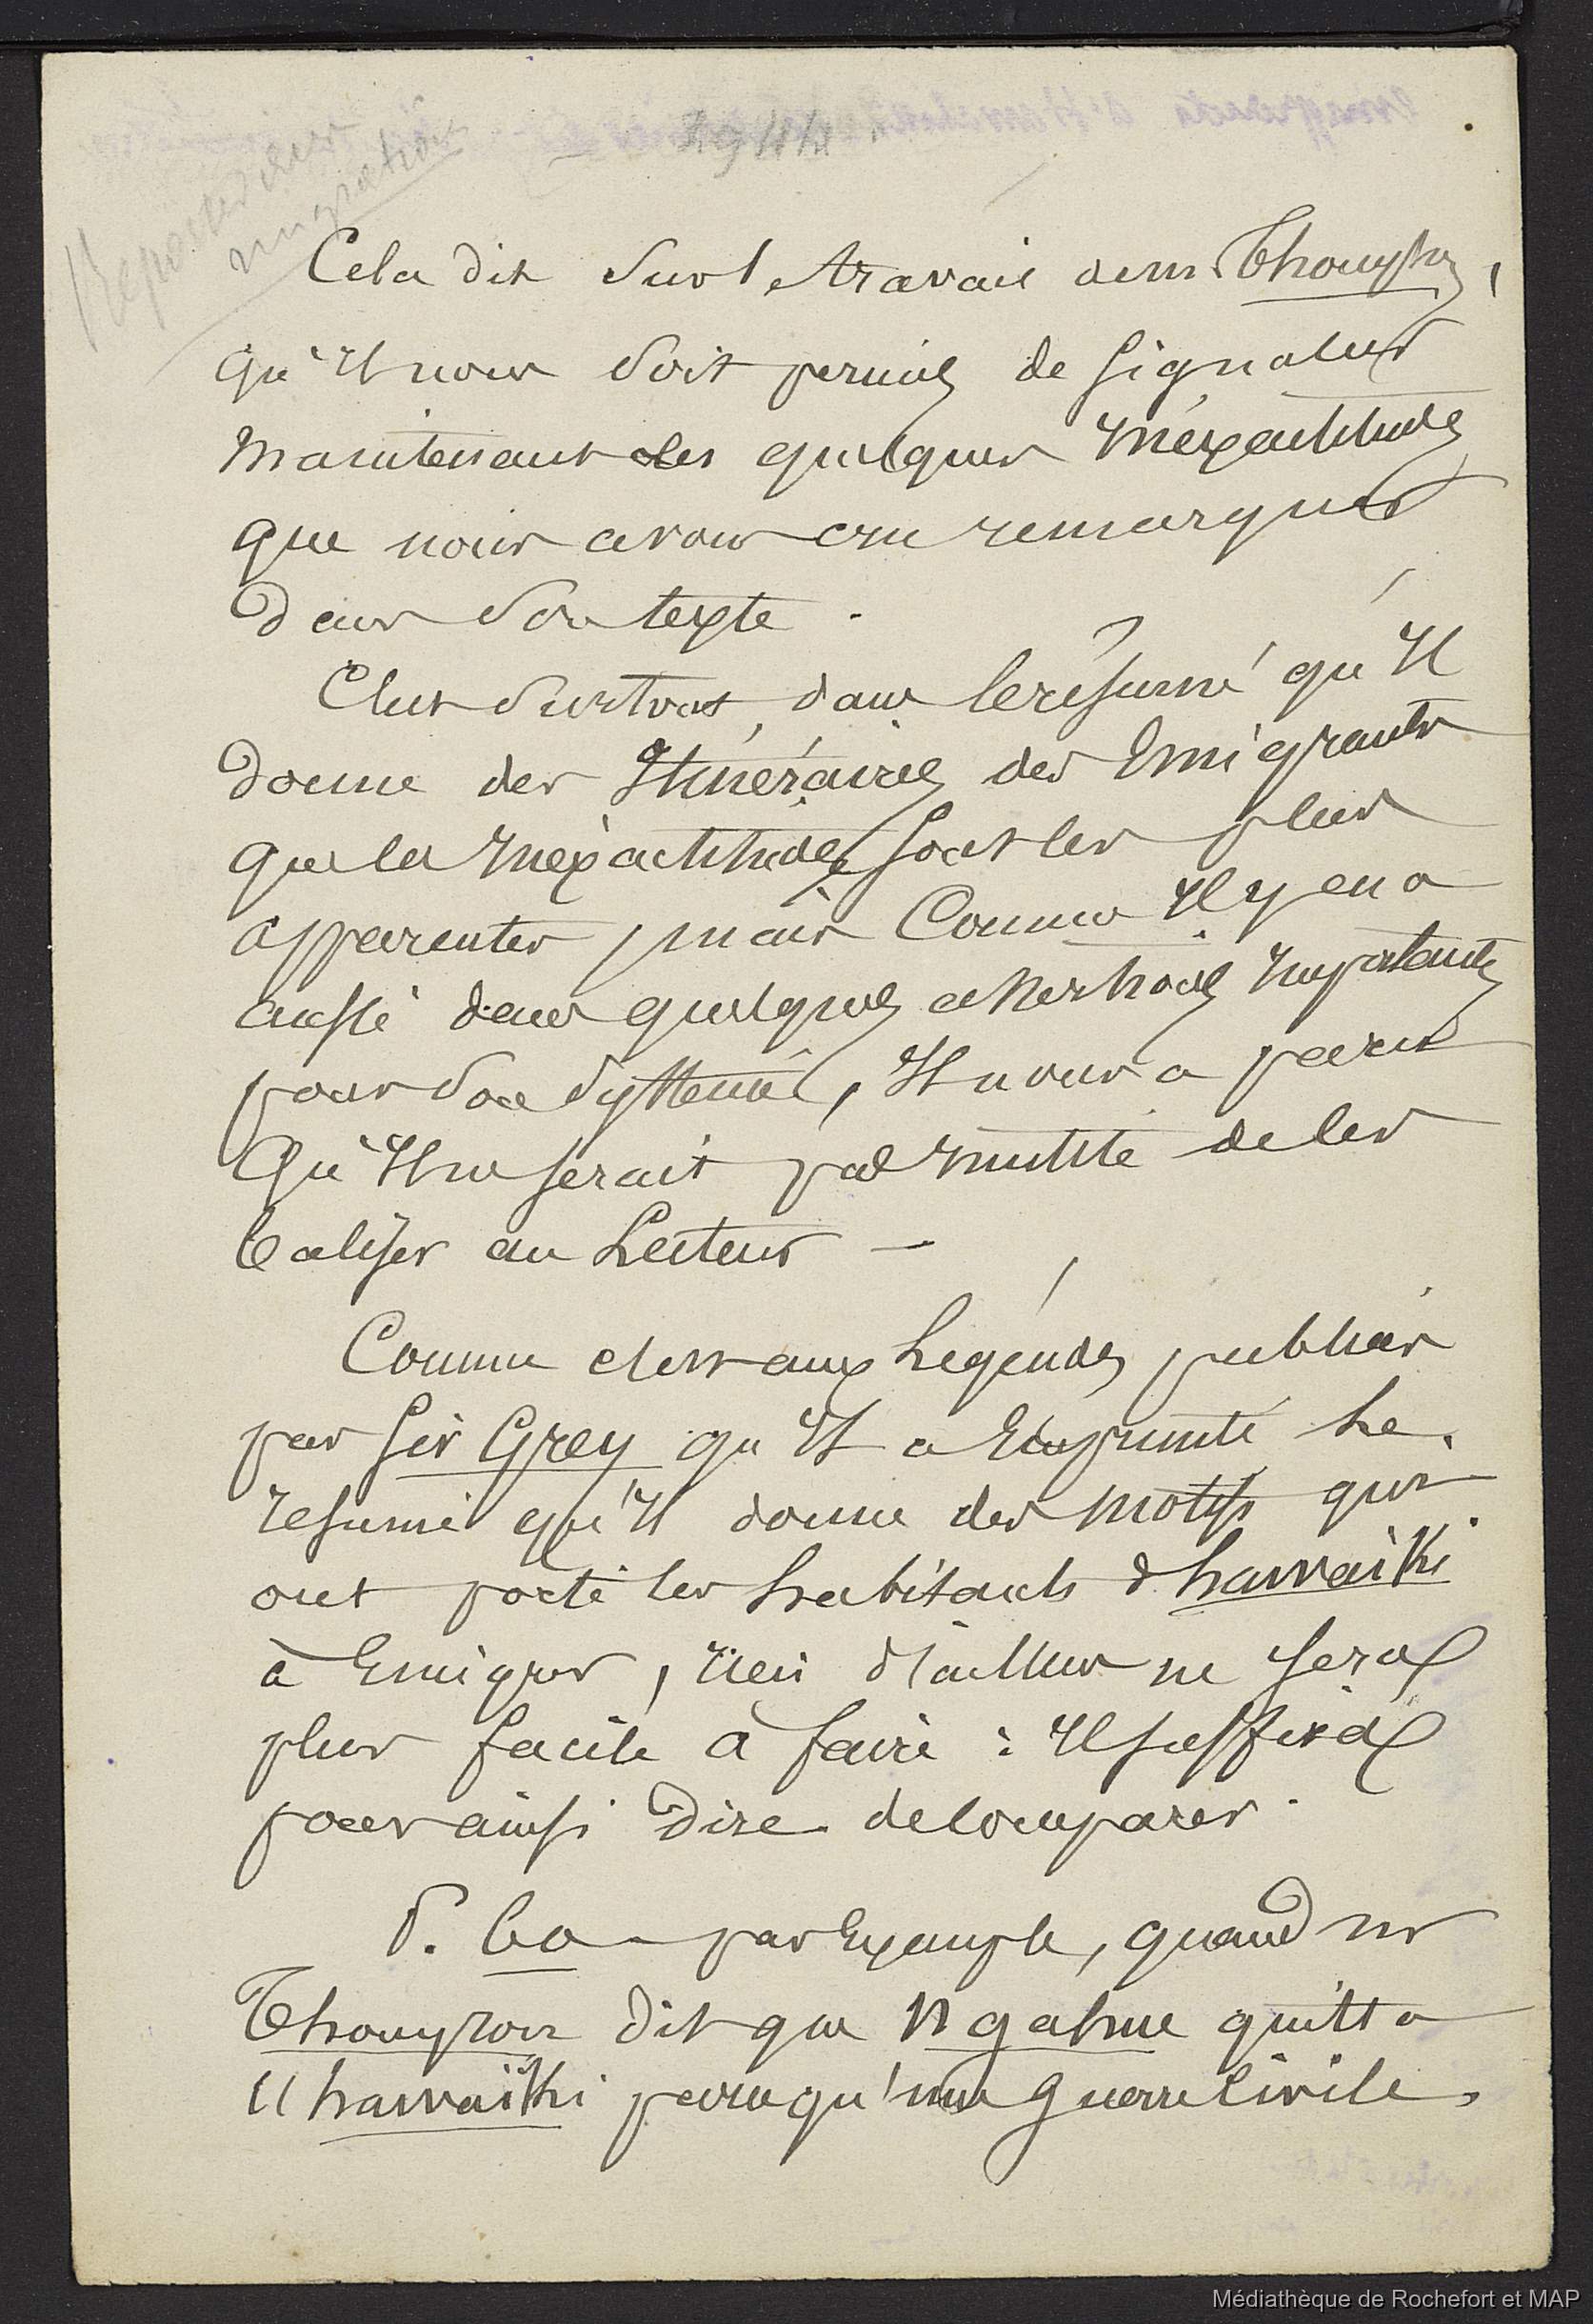 Reporter aux
migrations
Cela dit sur le travail de m. Thouyron,
qu'il nous soit permis de signaler
maintenant les quelques inexactitudes
que nous avons cru remarquer
dans son texte.
C'est surtout, dans le résumé qu'il
donne des Itinéraires des Emigrants
que les inexactitudes sont les plus
apparentes, mais comme il y en a
aussi dans quelques assertions importantes
pour son système, il nous a paru
qu'il ne serait pas inutile de les
baliser au Lecteur —
Comme c'est aux Légendes publiées
par Sir Grey qu'il a emprunté le
resumé qu'il donne des motifs qui
ont porté les habitants d'hawaïki
à Emigrer, rien d'ailleurs ne sera
plus facile à faire : il suffira
pour ainsi dire de comparer.
P. 60 par Exemple, quand mr
Thouyron dit que Ngahue quitta
l'hawaïki parcequ'une guerre civile,
Médiathèque de Rochefort et MAP